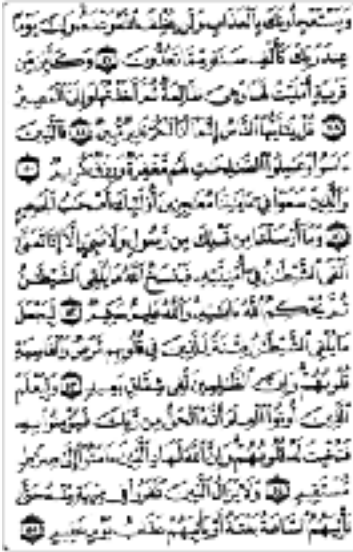 وَيَسْتَعْجِلُونَكَ بِالْعَذَابِ وَلَن يُخْلِفَ اللَّهُ وَعْدَهُ وَإِنَّ يَوْمًا
عِندَ رَبِّكَ كَأَلْفِ سَنَةٍ مِّمَّا تَعُدُّونَ ٤٧ وَكَأَيِّن مِّن
قَرْيَةٍ أَمْلَيْتُ لَهَا وَهِيَ ظَالِمَةٌ ثُمَّ أَخَذْتُهَا وَإِلَيَّ الْمَصِيرُ
٤٨ قُلْ يَا أَيُّهَا النَّاسُ إِنَّمَا أَنَا لَكُمْ نَذِيرٌ مُّبِينٌ ٤٩ فَالَّذِينَ
ءَامَنُوا وَعَمِلُوا الصَّالِحَاتِ لَهُم مَّغْفِرَةٌ وَرِزْقٌ كَرِيمٌ ٥٠
وَالَّذِينَ سَعَوْا فِي ءَايَاتِنَا مُعَاجِزِينَ أُولَٰئِكَ أَصْحَابُ الْجَحِيمِ
٥١ وَمَا أَرْسَلْنَا مِن قَبْلِكَ مِن رَّسُولٍ وَلَا نَبِيٍّ إِلَّا إِذَا تَمَنَّىٰ
أَلْقَى الشَّيْطَانُ فِي أُمْنِيَّتِهِ فَيَنسَخُ اللَّهُ مَا يُلْقِي الشَّيْطَانُ
ثُمَّ يُحْكِمُ اللَّهُ ءَايَاتِهِ وَاللَّهُ عَلِيمٌ حَكِيمٌ ٥٢ لِّيَجْعَلَ
مَا يُلْقِي الشَّيْطَانُ فِتْنَةً لِّلَّذِينَ فِي قُلُوبِهِم مَّرَضٌ وَالْقَاسِيَةِ
قُلُوبُهُمْ وَإِنَّ الظَّالِمِينَ لَفِي شِقَاقٍ بَعِيدٍ ٥٣ وَلِيَعْلَمَ
الَّذِينَ أُوتُوا الْعِلْمَ أَنَّهُ الْحَقُّ مِن رَّبِّكَ فَيُؤْمِنُوا بِهِ
فَتُخْبِتَ لَهُ قُلُوبُهُمْ وَإِنَّ اللَّهَ لَهَادِ الَّذِينَ ءَامَنُوا إِلَىٰ صِرَاطٍ
مُّسْتَقِيمٍ ٥٤ وَلَا يَزَالُ الَّذِينَ كَفَرُوا فِي مِرْيَةٍ مِّنْهُ حَتَّىٰ
تَأْتِيَهُمُ السَّاعَةُ بَغْتَةً أَوْ يَأْتِيَهُمْ عَذَابُ يَوْمٍ عَقِيمٍ ٥٥